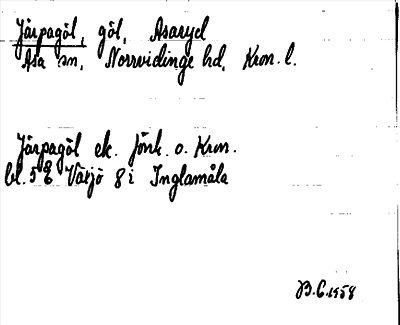 Järpagöl, göl, Asaryd
Asa sn, Norrvidinge hd, Kron. l.
Järpagöl ek. Jönk. o. Kron.
bl. 5 E Växjö 8 i Inglamåla
B.C. 1958